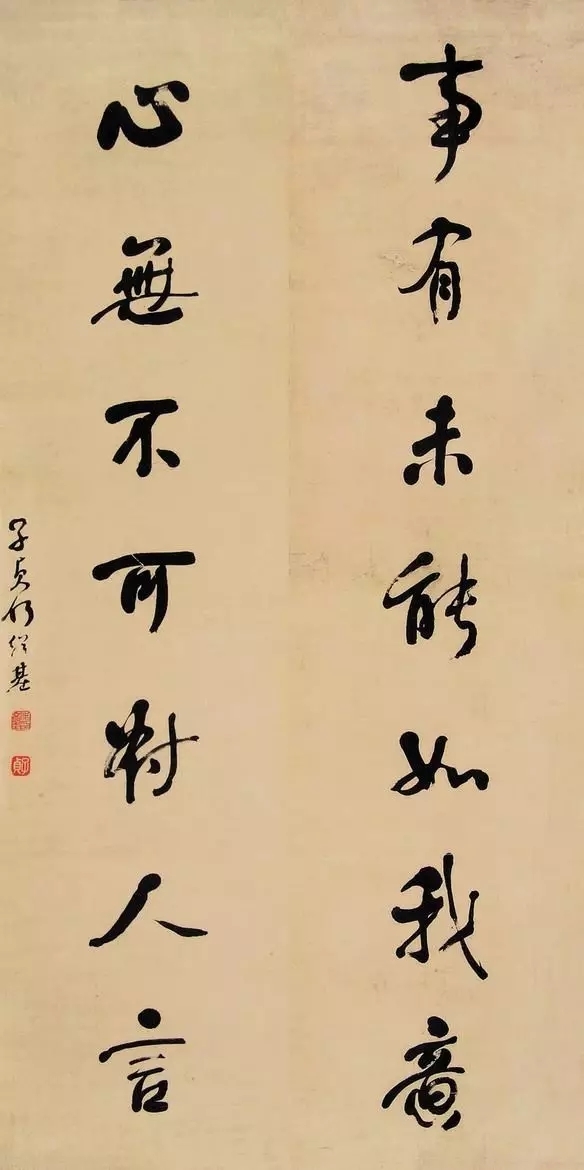 事有未能如我意
心無不可對人言
子貞何紹基